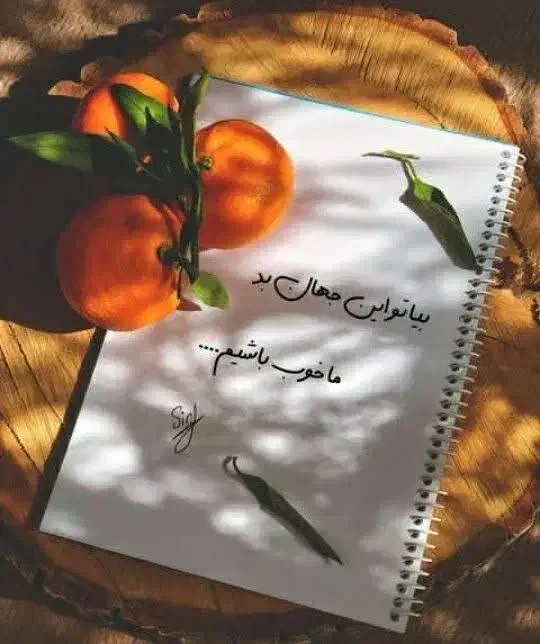 بیا تو این جهان بد
ما خوب باشیم....